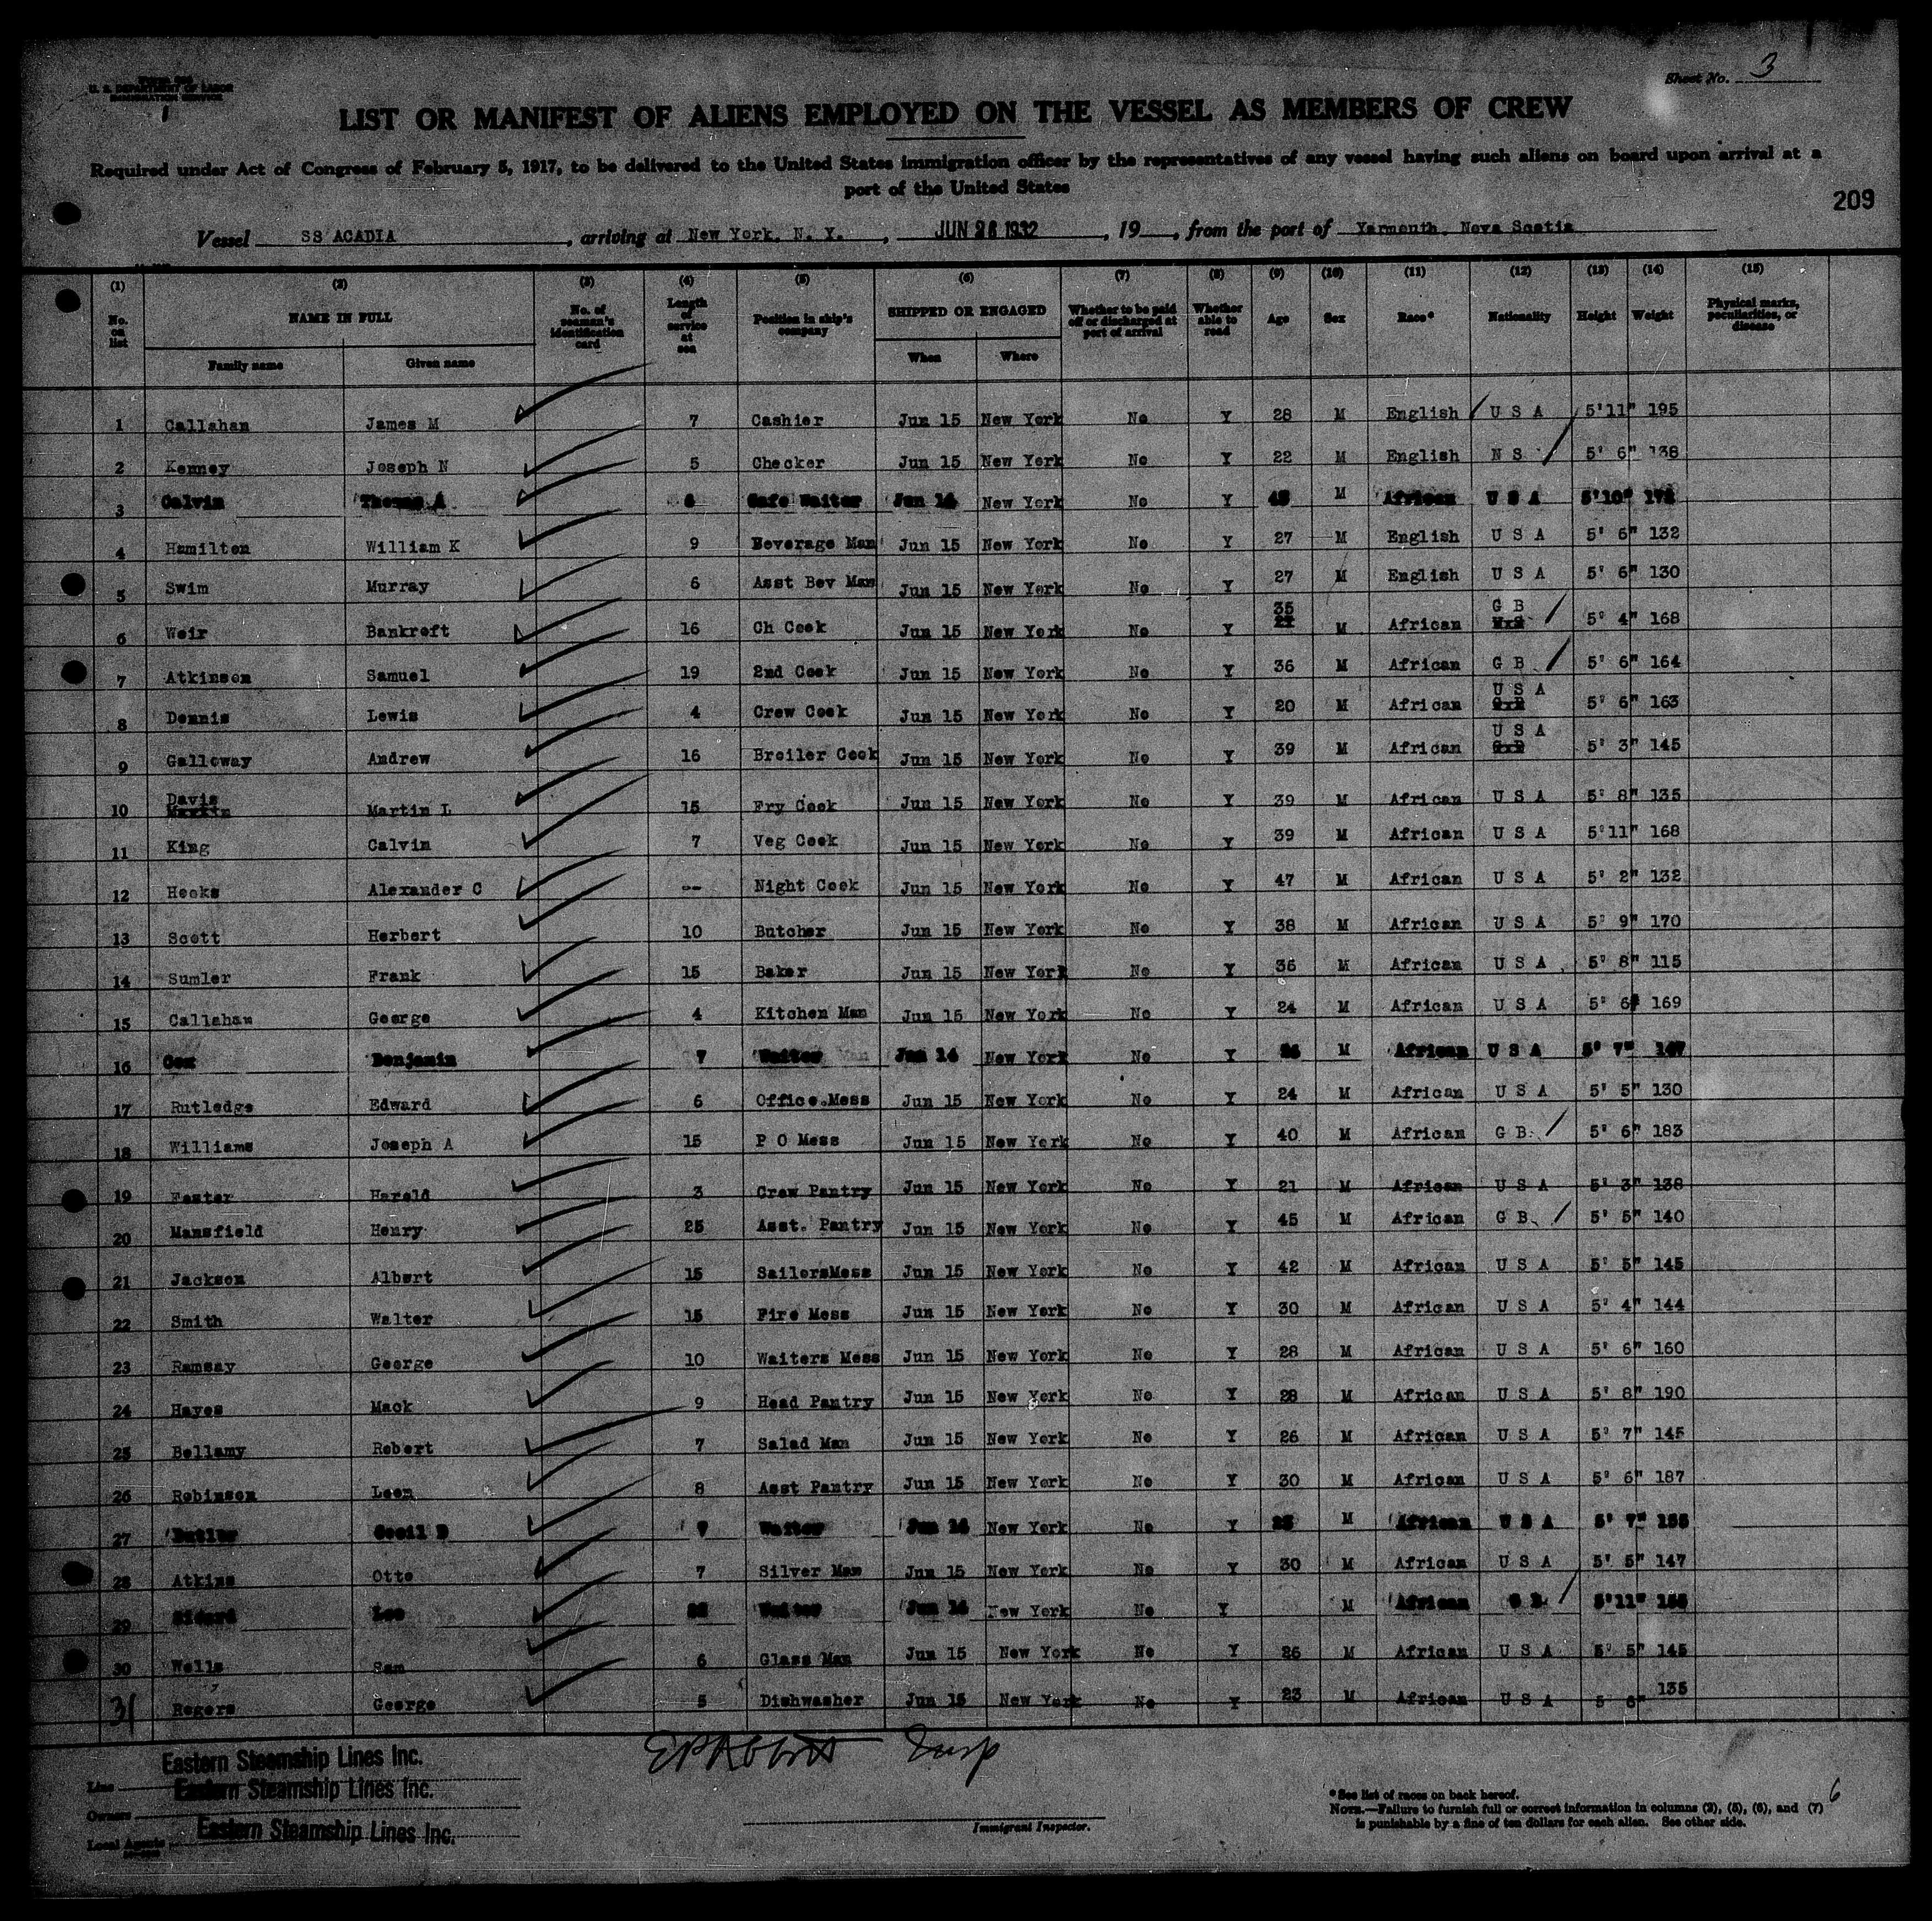 Form 680
U. S. DEPARTMENT OF LABOR
IMMIGRATION SERVICE
Sheet No. 3
LIST OR MANIFEST OF ALIENS EMPLOYED ON THE VESSEL AS MEMBERS OF CREW
Required under Act of Congress of February 5, 1917, to be delivered to the United States immigration officer by the representatives of any vessel having such aliens on board upon arrival at a
port of the United States
209
Vessel SS ACADIA, arriving at New York, N. Y., JUN 26 1932, 19 , from the port of Yarmouth, Nova Scotia
(1) (2) (3) (4) (5) (6) (7) (8) (9) (10) (11) (12) (13) (14) (15)
No. on list NAME IN FULL Family name Given name No. of seaman's identification card Length of service at sea Position in ship's company SHIPPED OR ENGAGED When Where Whether to be paid off or discharged at port of arrival Whether able to read Age Sex Race* Nationality Height Weight Physical marks, peculiarities, or disease
1 Callahan James M 7 Cashier Jun 15 New York No Y 28 M English U S A 5'11" 195
2 Kenney Joseph N 5 Checker Jun 15 New York No Y 22 M English N S 5' 6" 138
3 Calvin Thomas A Cafe Waiter Jun 14 New York No Y M African U S A 5'10"
4 Hamilton William K 9 Beverage Man Jun 15 New York No Y 27 M English U S A 5' 6" 132
5 Swim Murray 6 Asst Bev Man Jun 15 New York No Y 27 M English U S A 5' 6" 130
6 Weir Bankroft 16 Ch Cook Jun 15 New York No Y 35 M African G B 5' 4" 168
7 Atkinson Samuel 19 2nd Cook Jun 15 New York No Y 36 M African G B 5' 6" 164
8 Dennis Lewis 4 Crew Cook Jun 15 New York No Y 20 M African U S A 5' 6" 163
9 Galloway Andrew 16 Broiler Cook Jun 15 New York No Y 39 M African U S A 5' 3" 145
10 Davis Martin Martin L 15 Fry Cook Jun 15 New York No Y 39 M African U S A 5' 8" 135
11 King Calvin 7 Veg Cook Jun 15 New York No Y 39 M African U S A 5'11" 168
12 Hooks Alexander C -- Night Cook Jun 15 New York No Y 47 M African U S A 5' 2" 132
13 Scott Herbert 10 Butcher Jun 15 New York No Y 38 M African U S A 5' 9" 170
14 Sumler Frank 15 Baker Jun 15 New York No Y 35 M African U S A 5' 8" 115
15 Callahaw George 4 Kitchen Man Jun 15 New York No Y 24 M African U S A 5' 6" 169
16 Cox Benjamin 7 Waiter Jun 14 New York No Y M African U S A 5' 7" 147
17 Rutledge Edward 6 Office.Mess Jun 15 New York No Y 24 M African U S A 5' 5" 130
18 Williams Joseph A 15 P O Mess Jun 15 New York No Y 40 M African G B 5' 6" 183
19 Foster Harold 3 Crew Pantry Jun 15 New York No Y 21 M African U S A 5' 3" 138
20 Mansfield Henry 25 Asst. Pantry Jun 15 New York No Y 45 M African G B 5' 5" 140
21 Jackson Albert 15 SailorsMess Jun 15 New York No Y 42 M African U S A 5' 5" 145
22 Smith Walter 15 Fire Mess Jun 15 New York No Y 30 M African U S A 5' 4" 144
23 Ramsay George 10 Waiters Mess Jun 15 New York No Y 28 M African U S A 5' 6" 160
24 Hayes Mack 9 Head Pantry Jun 15 New York No Y 28 M African U S A 5' 8" 190
25 Bellamy Robert 7 Salad Man Jun 15 New York No Y 26 M African U S A 5' 7" 145
26 Robinson Leon 8 Asst Pantry Jun 15 New York No Y 30 M African U S A 5' 6" 187
27 Butler Cecil B Waiter Jun 14 New York No Y M African U S A 5' 7" 155
28 Atkins Otto 7 Silver Man Jun 15 New York No Y 30 M African U S A 5' 5" 147
29 Lee Waiter Jun 14 New York No Y M African G B 5'11"
30 Wells Sam 6 Glass Man Jun 15 New York No Y 26 M African U S A 5' 5" 145
31 Rogers George 5 Dishwasher Jun 15 New York No Y 23 M African U S A 5 6" 135
Line Eastern Steamship Lines Inc.
Owners Eastern Steamship Lines Inc.
Local Agents Eastern Steamship Lines Inc.
EPAbbott Insp
Immigrant Inspector.
6
*See list of races on back hereof.
NOTE.—Failure to furnish full or correct information in columns (2), (5), (6), and (7)
is punishable by a fine of ten dollars for each alien. See other side.